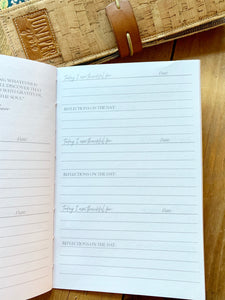 DISCOVER THAT
WITH GRATITUDE,
THE SOUL."
Date:
Date:
Today I am thankful for: Date:
REFLECTIONS ON THE DAY:
Today I am thankful for: Date:
REFLECTIONS ON THE DAY:
Today I am thankful for: Date:
REFLECTIONS ON THE DAY: